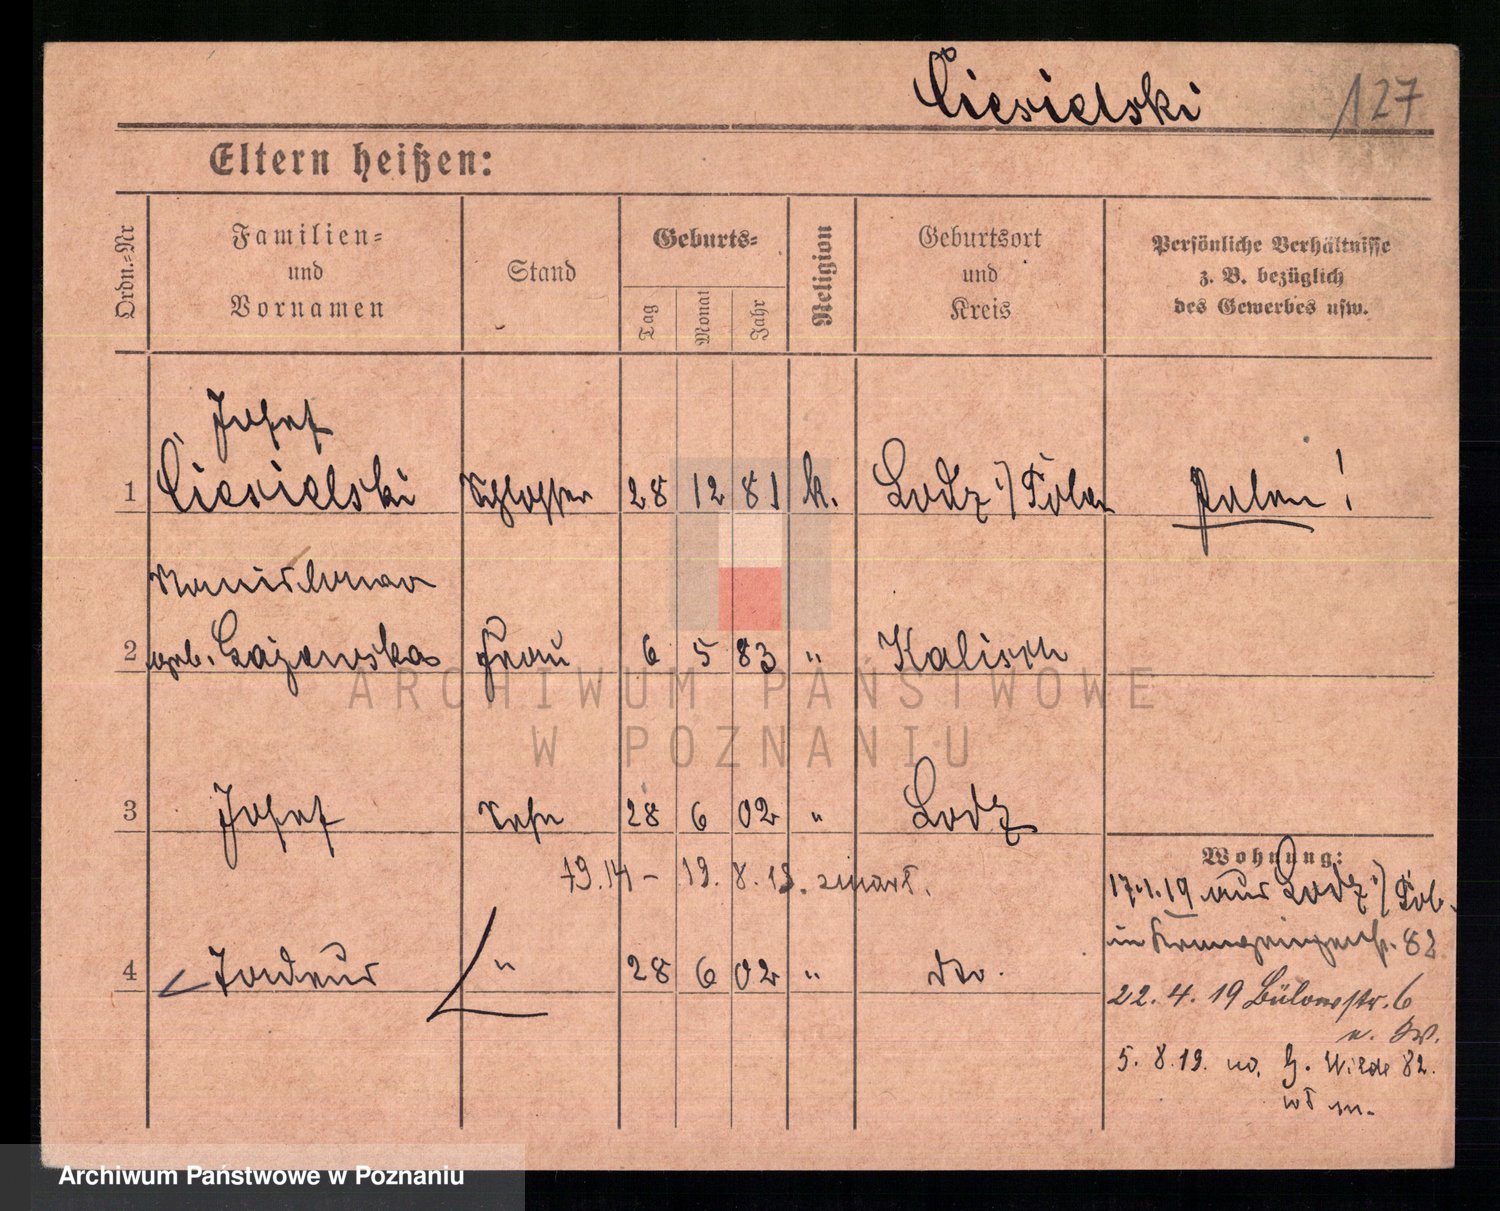 Ciesielski 127
Eltern heißen:
Ordn.-Nr
Familien-
und
Vornamen
Stand
Geburts-
Tag
Monat
Jahr
Religion
Geburtsort
und
Kreis
Persönliche Verhältnisse
z. B. bezüglich
des Gewerbes usw.
Josef
1 Ciesielski Schlosser 28 12 81 k. Lodz i/ Polen Polen!
2 geb. Frau 6 5 83 " Kalisch
3 Josef Sohn 28 6 02 " Lodz
19. 8. 19.
4 " 28 6 02 " dto.
Wohnung:
17.1.19 aus Lodz i/ Pol.
in 82
22. 4. 19 Bülowstr. 6
5. 8. 19. G. Wilda 82.
ARCHIWUM PAŃSTWOWE
W POZNANIU
Archiwum Państwowe w Poznaniu